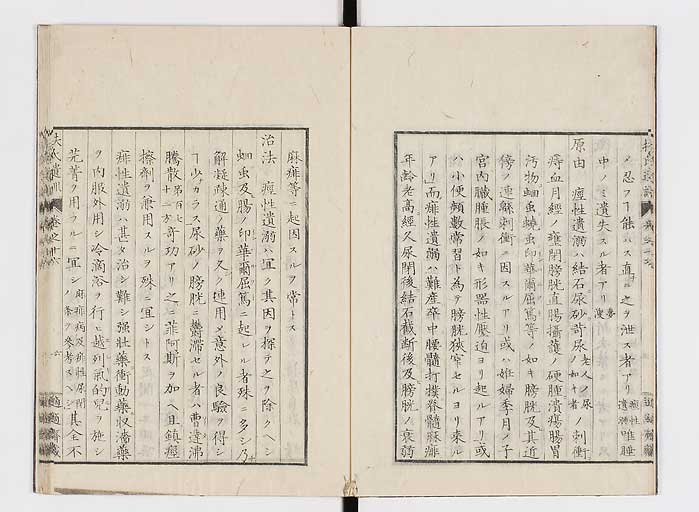 ノ忍フ能ハス直ニ之ヲ泄ス者アリ痙性遺溺唯睡
中ノミ遺失スル者アリ
原由 痙性遺溺ハ結石尿砂苛尿老人ノ尿ノ如キ者ノ刺衝
痔血月經ノ壅閉膀胱直腸攝護ノ硬腫潰瘍腸胃
汚物蛔蟲蟯蟲印華爾屈篤等ノ如キ膀胱及其近
傍ノ連緜刺衝ニ因スルアリ或ハ姙婦季月ノ子
宮內臟腫脹ノ如キ形器性壓迫ヨリ起ルアリ或
ハ小便頻數常習ト為テ膀胱狹窄セルヨリ來ル
アリ而痱性遺溺ハ難產卒中腰髓打撲脊髓麻痱
年齡老高經久尿閉後結石截斷後及膀胱ノ衰弱
麻痱等ニ起因スルヲ常トス
治法 痙性遺溺ハ宜ク其因ヲ探テ之ヲ除クヘシ
蛔蟲及腸ノ印華爾屈篤ニ起レル者殊ニ多シ乃
解凝疎通ノ藥ヲ久ク連用メ意外ノ良驗ヲ得シ
少カラス尿砂ノ膀胱ニ鬱滯セル者ハ曹達沸
騰散百七十二方奇功アリ之ニ菲阿斯ヲ加ヘ且鎮痙
擦劑ヲ兼用スルヲ殊ニ宜シトス
痱性遺溺ハ甚タ治シ難シ強壯藥衝動藥收濇藥
ヲ內服外用シ冷滴浴ヲ行ヒ越列氣的兒ヲ施シ
芫菁ヲ用ウルニ宜シ麻痱病及痱性尿閉ノ条ヲ參考スヘシ其全不